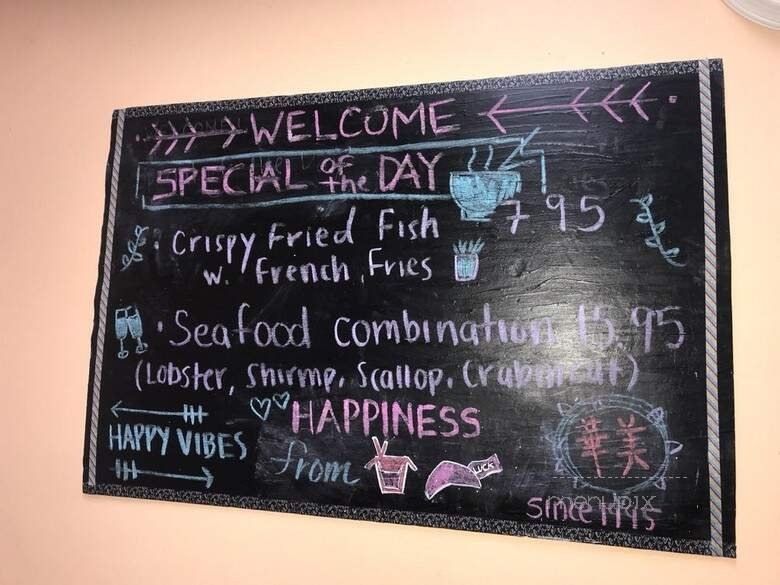 WELCOME
SPECIAL of the DAY
• Crispy Fried Fish 7 95
w. French Fries
• Seafood combination 15.95
(Lobster, Shirmp, Scallop, Crabmeat)
HAPPY VIBES
HAPPINESS
from
LUCK
華美
menupix
Since